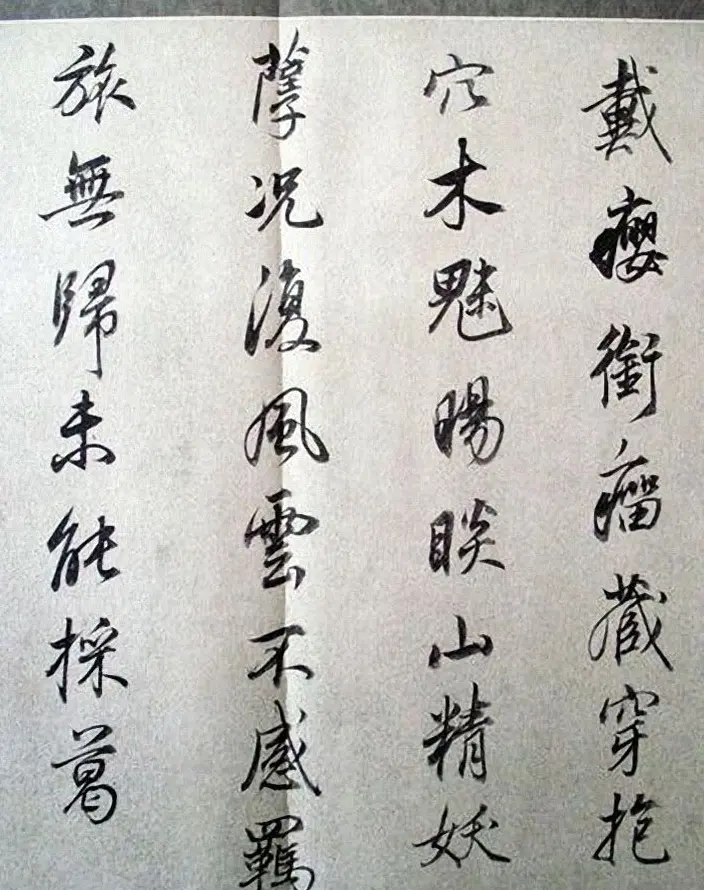 戴癭銜瘤藏穿抱
穴木魅睗睒山精妖
孽况復風雲不感羈
旅無歸未能採葛